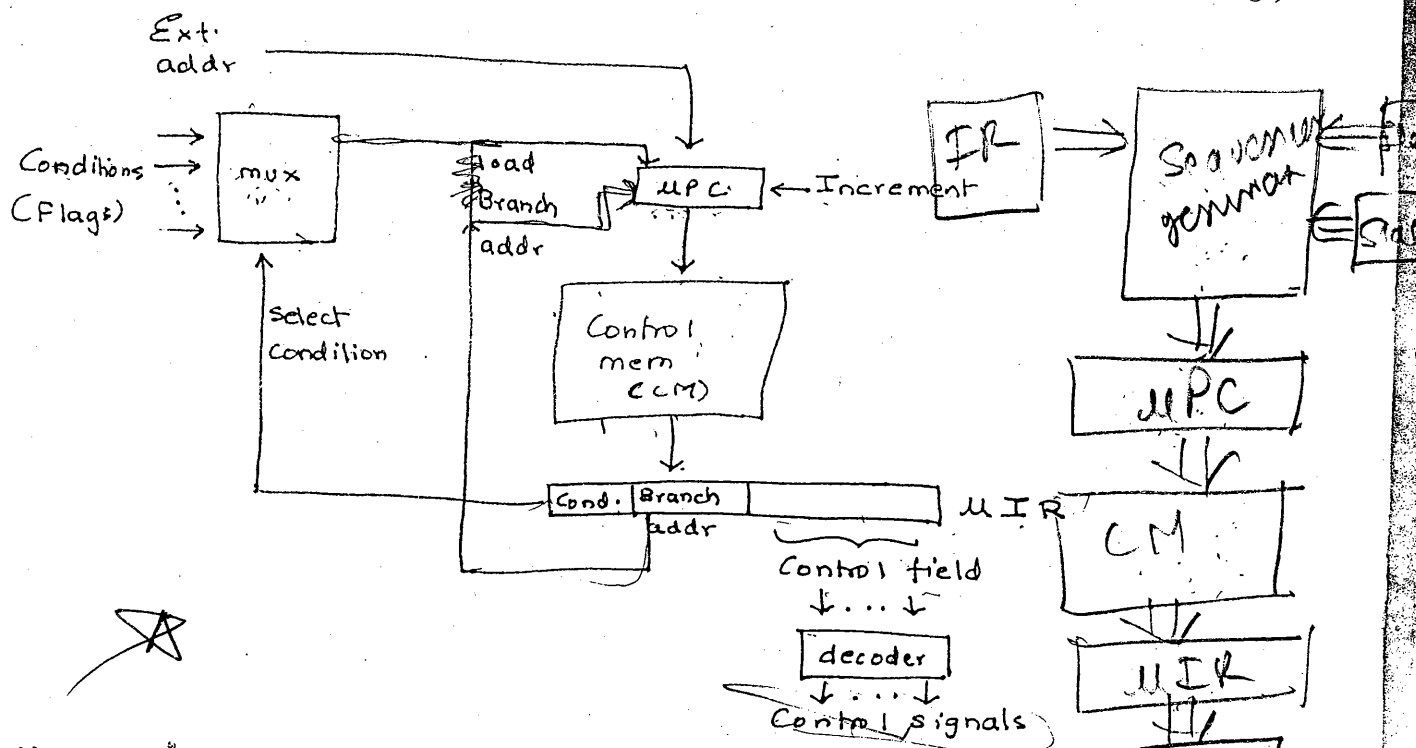 Ext.
addr
Conditions
(Flags)
mux
Load
Branch
addr
μPC
Increment
Select
condition
Control
mem
(CM)
Cond.
Branch
addr
μIR
Control field
decoder
Control signals
IR
μPC
CM
μIR